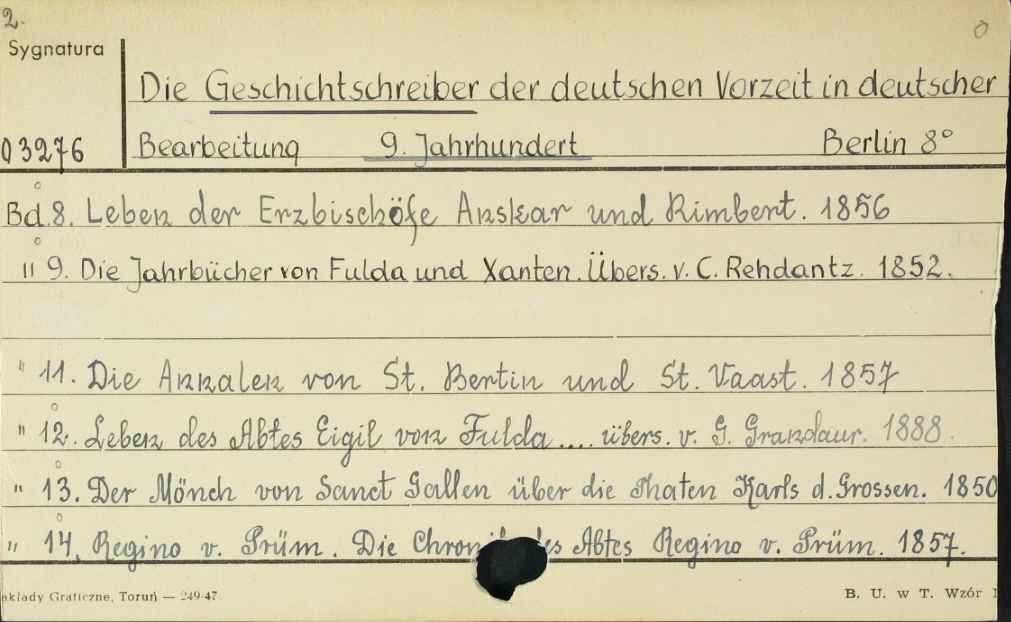 2.
Sygnatura
Die Geschichtschreiber der deutschen Vorzeit in deutscher
03276 Bearbeitung 9. Jahrhundert Berlin 8°
Bd. 8. Leben der Erzbischöfe Anskar und Rimbert. 1856
" 9. Die Jahrbücher von Fulda und Xanten. Übers. v. C. Rehdantz. 1852.
" 11. Die Annalen von St. Bertin und St. Vaast. 1857
" 12. Leben des Abtes Eigil von Fulda .... übers. v. G. Grandaur. 1888.
" 13. Der Mönch von Sanct Gallen über die Thaten Karls d. Grossen. 1850
" 14. Regino v. Prüm. Die Chronik des Abtes Regino v. Prüm. 1857.
akłady Graficzne, Toruń — 249-47
B. U. w T. Wzór